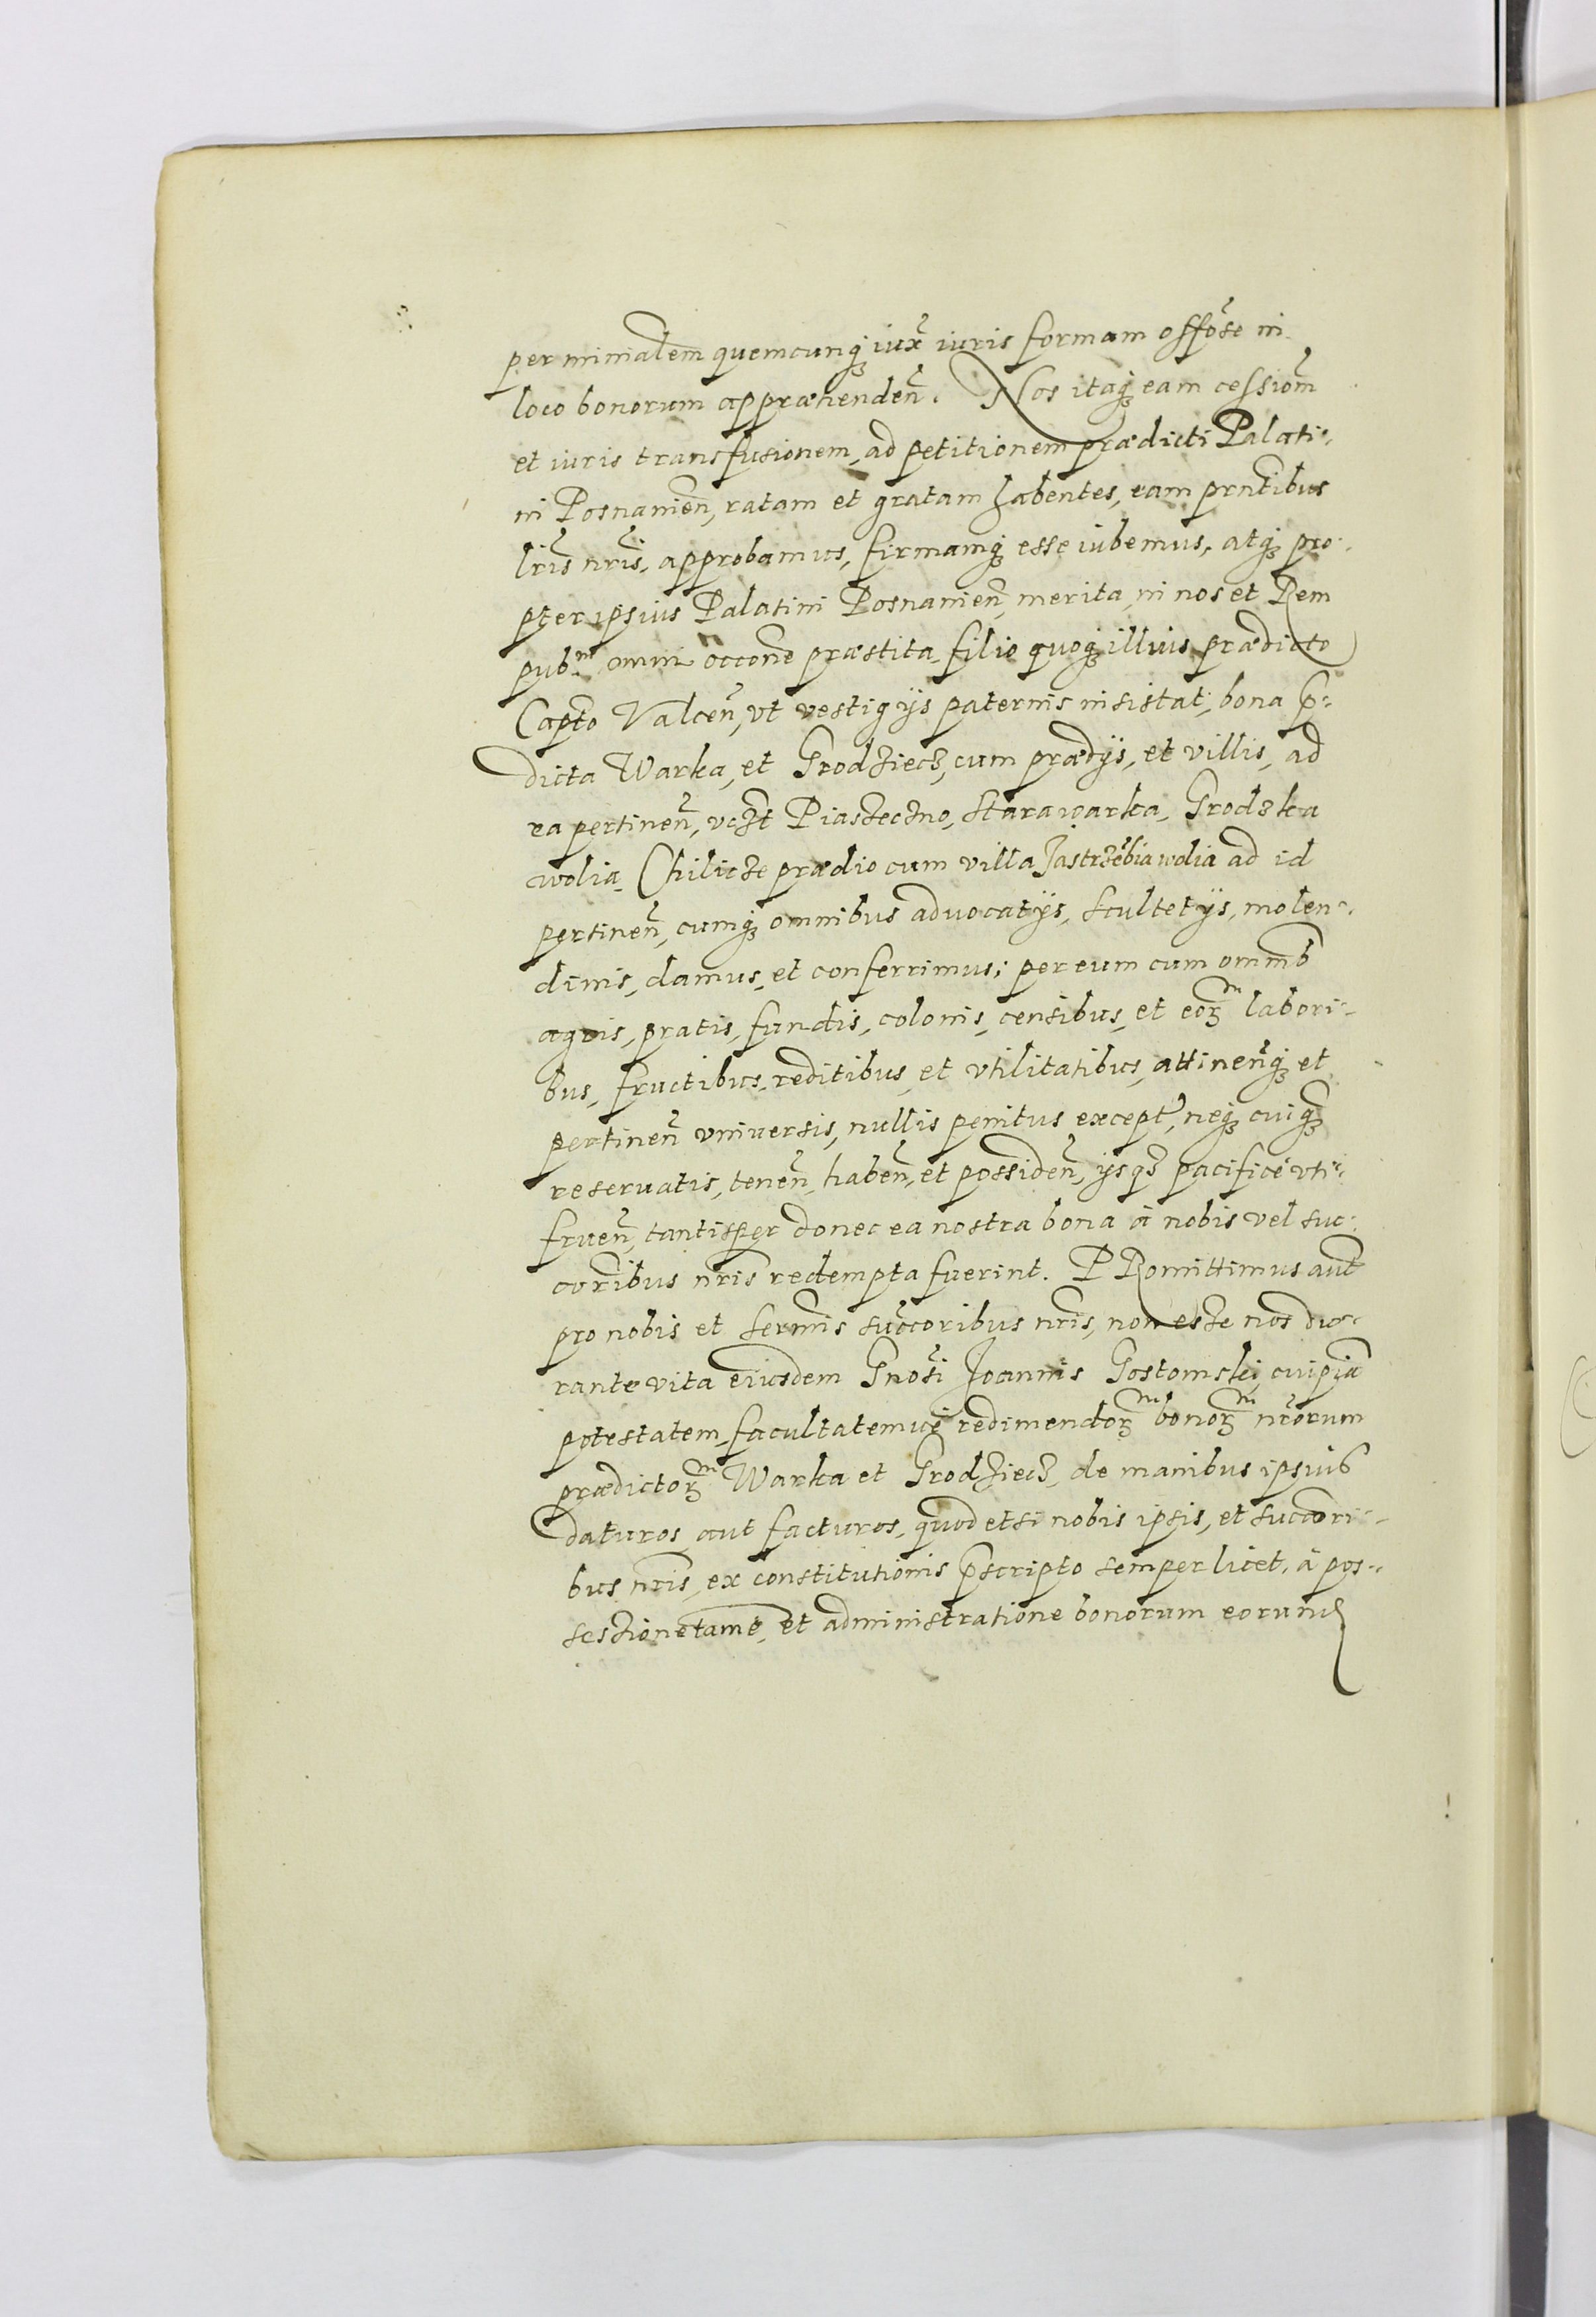 per minialem quemcunq iux̃ iuris formam offõse in
loco bonorum appræhendeñ. Nos itaq eam cessioñ
et iuris transfusionem, ad petitionem prædicti Palati-
ni Posnanieñ, ratam et gratam habentes, eam prñtibus
lr̃is nr̃is, approbamus, firmamq esse iubemus, atq pro-
pter ipsius Palatini Posnanieñ, merita, in nos et Rem
pub.m omni occone præstita, filio quoq illius prædicto
Capto Valceñ, vt vestigijs paternis insistat, bona p̃-
dicta Warka, et Grodziecz, cum prædijs, et villis, ad
ea pertineñ, vczt Piaszeczno, Starawarka, Grodzka
wolia, Chilicze prædio cum villa Jastrzebia wolia ad id
pertineñ, cumq omnibus aduocatijs, scultetijs, molen-
dinis, damus, et conferrimus; per eum cum omnib
agris, pratis, fundis, colonis, censibus, et eoꝝm labori-
bus, fructibus, reditibus, et vtilitatibus, attineñq et
pertineñ vniuersis, nullis penitus except, neq cuiq
reseruatis, teneñ, habeñ, et possideñ, ijsq pacificè vti-
frueñ, tantisper donec ea nostra bona à nobis vel suc-
coribus nr̃is redempta fuerint. PRomittimus aut̃
pro nobis et serm̃is suc̃coribus nr̃is, non esse nos du-
rante vita eiusdem Gnosi Joannis Gostomski, cuipiã
potestatem, facultatemuè redimendoꝝm bonoꝝm nr̃orum
prædictoꝝm Warka et Grodziecz, de manibus ipsius
daturos aut facturos, quod etsi nobis ipsis, et succori-
bus nr̃is, ex constitutionis p̃scripto semper licet, à pos-
sessione tamẽ, et administratione bonorum eorund